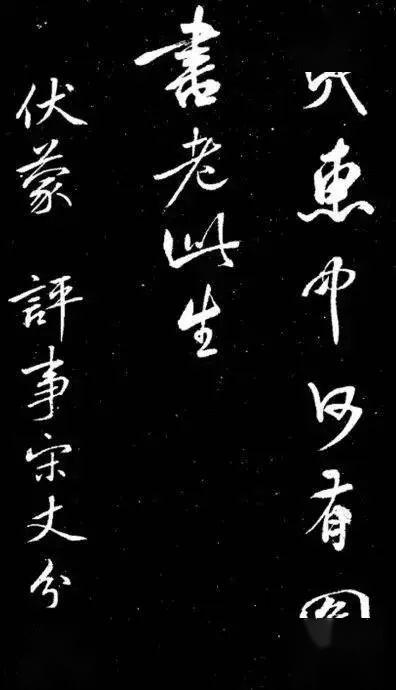 惠中何有圖
書老此生
伏蒙 評事宋丈分